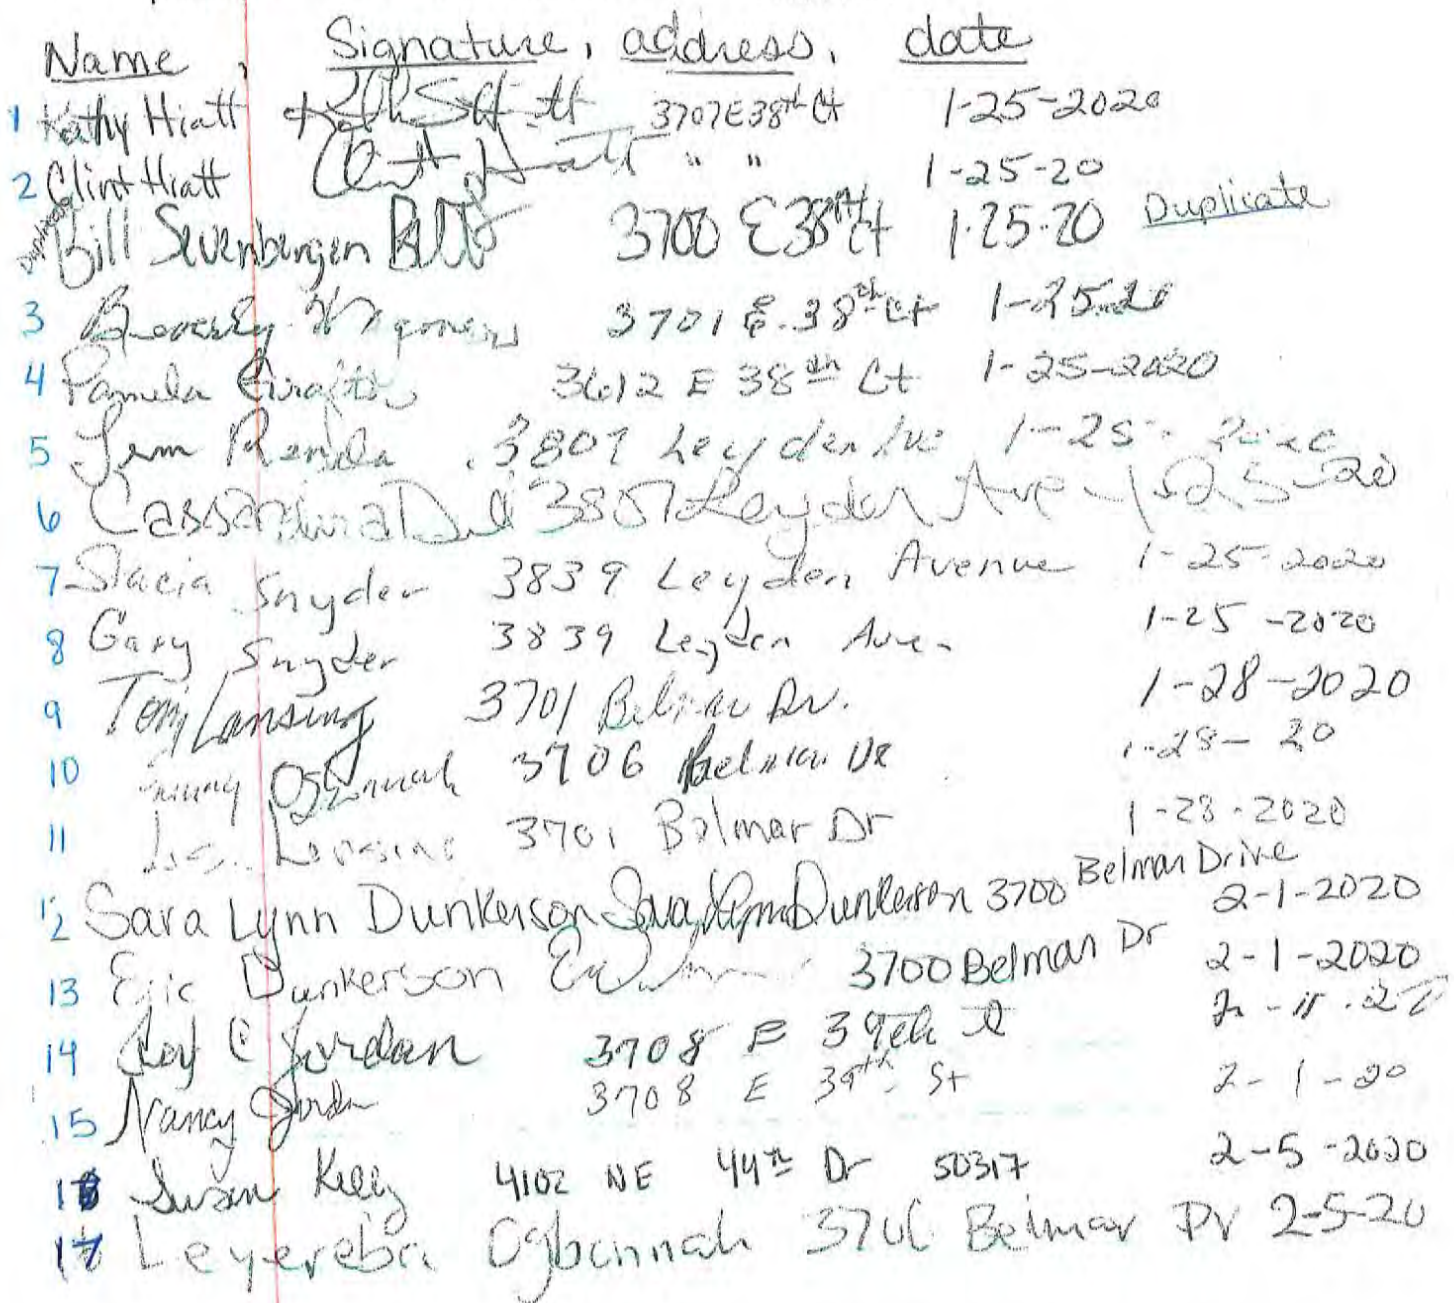 Name, Signature, address, date
1 Kathy Hiatt 3707 E 38th Ct 1-25-2020
2 Clint Hiatt Clint Hiatt " " 1-25-20
Duplicate Bill Sevenbergen Bill 3700 E 38th Ct 1-25-20 Duplicate
3 Beverly 3701 E. 38th Ct 1-25-20
4 Pamela 3612 E 38th Ct 1-25-2020
5 Jem Renda 3807 Leyden Ave 1-25-2020
6 Cassandra 3807 Leyden Ave 1-25-20
7 Stacia Snyder 3839 Leyden Avenue 1-25-2020
8 Gary Snyder 3839 Leyden Ave. 1-25-2020
9 Tony Lansing 3701 Belmar Dr. 1-28-2020
10 Ogbonnah 3706 Belmar Dr 1-28-20
11 Lansing 3701 Belmar Dr 1-28-2020
12 Sara Lynn Dunkerson Sara Lynn Dunkerson 3700 Belmar Drive 2-1-2020
13 Eric Dunkerson 3700 Belmar Dr 2-1-2020
14 Roy C Jordan 3708 E 39th
15 Nancy Jordan 3708 E 39th St 2-1-20
16 Susan Kelly 4102 NE 44th Dr 50317 2-5-2020
17 Ogbonnah 3706 Belmar Dr 2-5-20